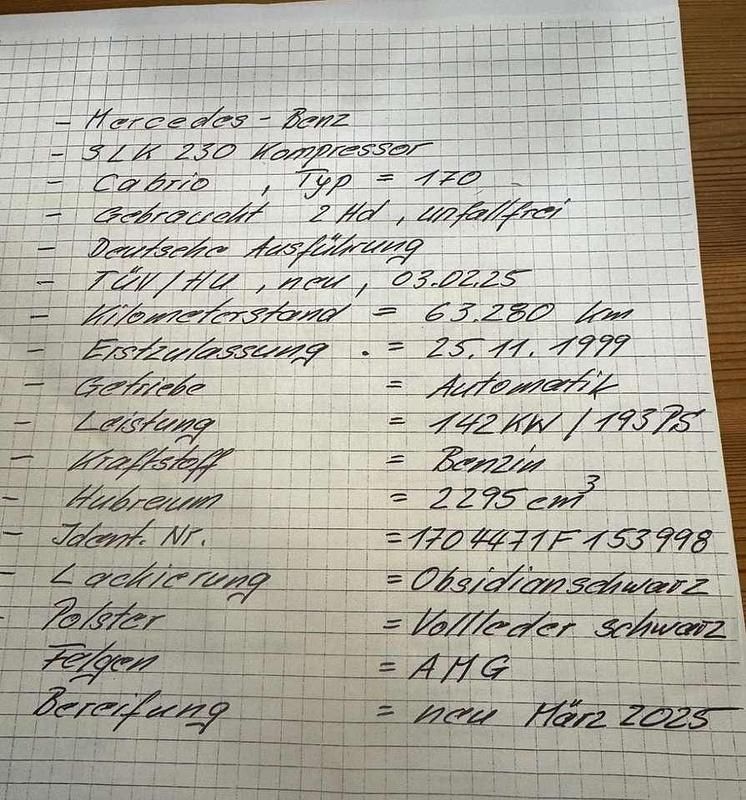 - Mercedes-Benz
- SLK 230 Kompressor
- Cabrio , Typ = 170
- Gebraucht 2 Hd , unfallfrei
- Deutsche Ausführung
- TÜV/HU , neu , 03.02.25
- Kilometerstand = 63.280 km
- Erstzulassung . = 25.11.1999
- Getriebe = Automatik
- Leistung = 142 KW / 193 PS
- Kraftstoff = Benzin
- Hubraum = 2295 cm³
- Ident. Nr. = 1704471F153998
- Lackierung = Obsidianschwarz
- Polster = Vollleder schwarz
Felgen = AMG
Bereifung = neu März 2025